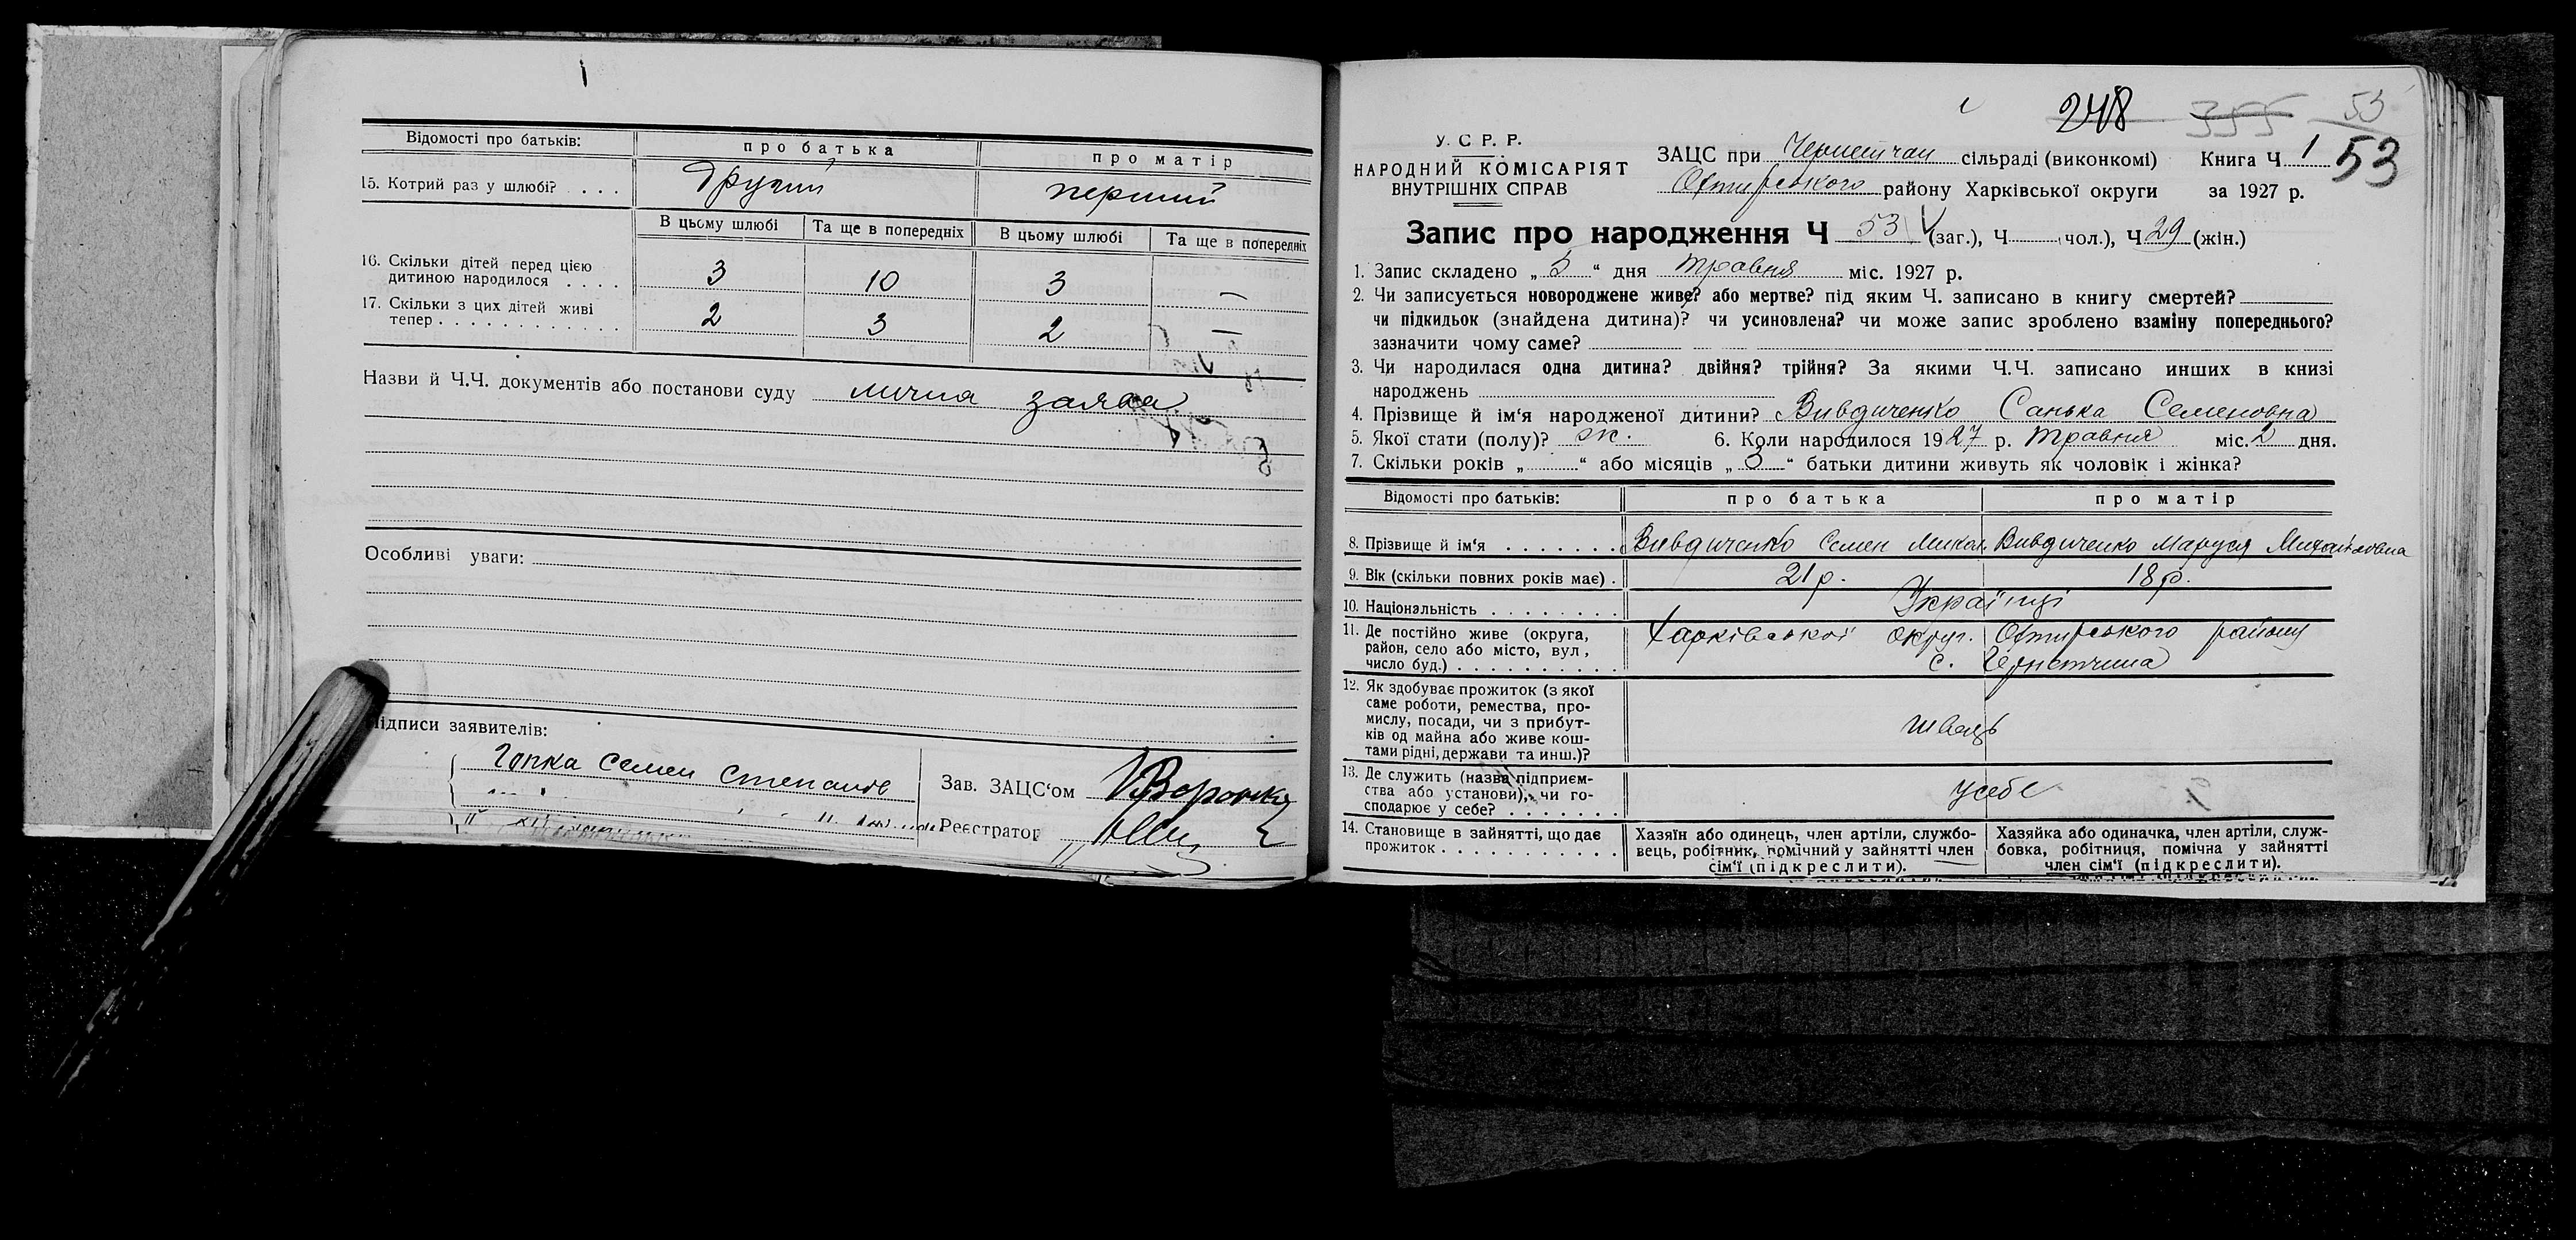 Відомості про батьків: про батька про матір
15. Котрий раз у шлюбі? . . . . Другий перший
В цьому шлюбі Та ще в попередніх В цьому шлюбі Та ще в попередніх
16. Скільки дітей перед цією
дитиною народилося . . . . 3 10 3 —
17. Скільки з цих дітей живі
тепер . . . . . . . . . . . . 2 3 2 —
Назви й Ч.Ч. документів або постанови суду лична заява
Особливі уваги:
Підписи заявителів:
Гопка Семен Степанов
Зав. ЗАЦС‘ом
Реєстратор
248 355 53
У. С. Р. Р.
НАРОДНИЙ КОМІСАРІЯТ
ВНУТРІШНІХ СПРАВ
ЗАЦС при сільраді (виконкомі) Книга Ч 1 53
Охтирського району Харківської округи за 1927 р.
Запис про народження Ч 53 (заг.), Ч (чол.), Ч 29 (жін.)
1. Запис складено „ 5 “ дня травня міс. 1927 р.
2. Чи записується новороджене живе? або мертве? під яким Ч. записано в книгу смертей?
чи підкидьок (знайдена дитина)? чи усиновлена? чи може запис зроблено взаміну попереднього?
зазначити чому саме?
3. Чи народилася одна дитина? двійня? трійня? За якими Ч.Ч. записано инших в книзі
народжень
4. Прізвище й ім‘я народженої дитини? Вивдиченко Санька Семеновна
5. Якої стати (полу)? ж. 6. Коли народилося 1927 р. травня міс. 2 дня.
7. Скільки років „ “ або місяців „ “ батьки дитини живуть як чоловік і жінка?
Відомості про батьків: про батька про матір
8. Прізвище й ім‘я . . . . . . . Вивдиченко Семен Микол. Вивдиченко Маруся Михайловна
9. Вік (скільки повних років має) . 21 р. 18 р.
10. Національність . . . . . . . . Українці
11. Де постійно живе (округа,
район, село або місто, вул.,
число буд.) . . . . . . . . . . Харківської округ. Охтирського району
с. Чернетчина
12. Як здобуває прожиток (з якої
саме роботи, ремества, про-
мислу, посади, чи з прибут-
ків од майна або живе кош-
тами рідні, держави та инш.)? швець
13. Де служить (назва підприєм-
ства або установи), чи го-
сподарює у себе? . . . . . . . усебе
14. Становище в зайнятті, що дає
прожиток . . . . . . . . . . .
Хазяїн або одинець, член артіли, службо-
вець, робітник, помічний у зайнятті член
сім‘ї (підкреслити).
Хазяйка або одиначка, член артіли, служ-
бовка, робітниця, помічна у зайнятті
член сім‘ї (підкреслити).